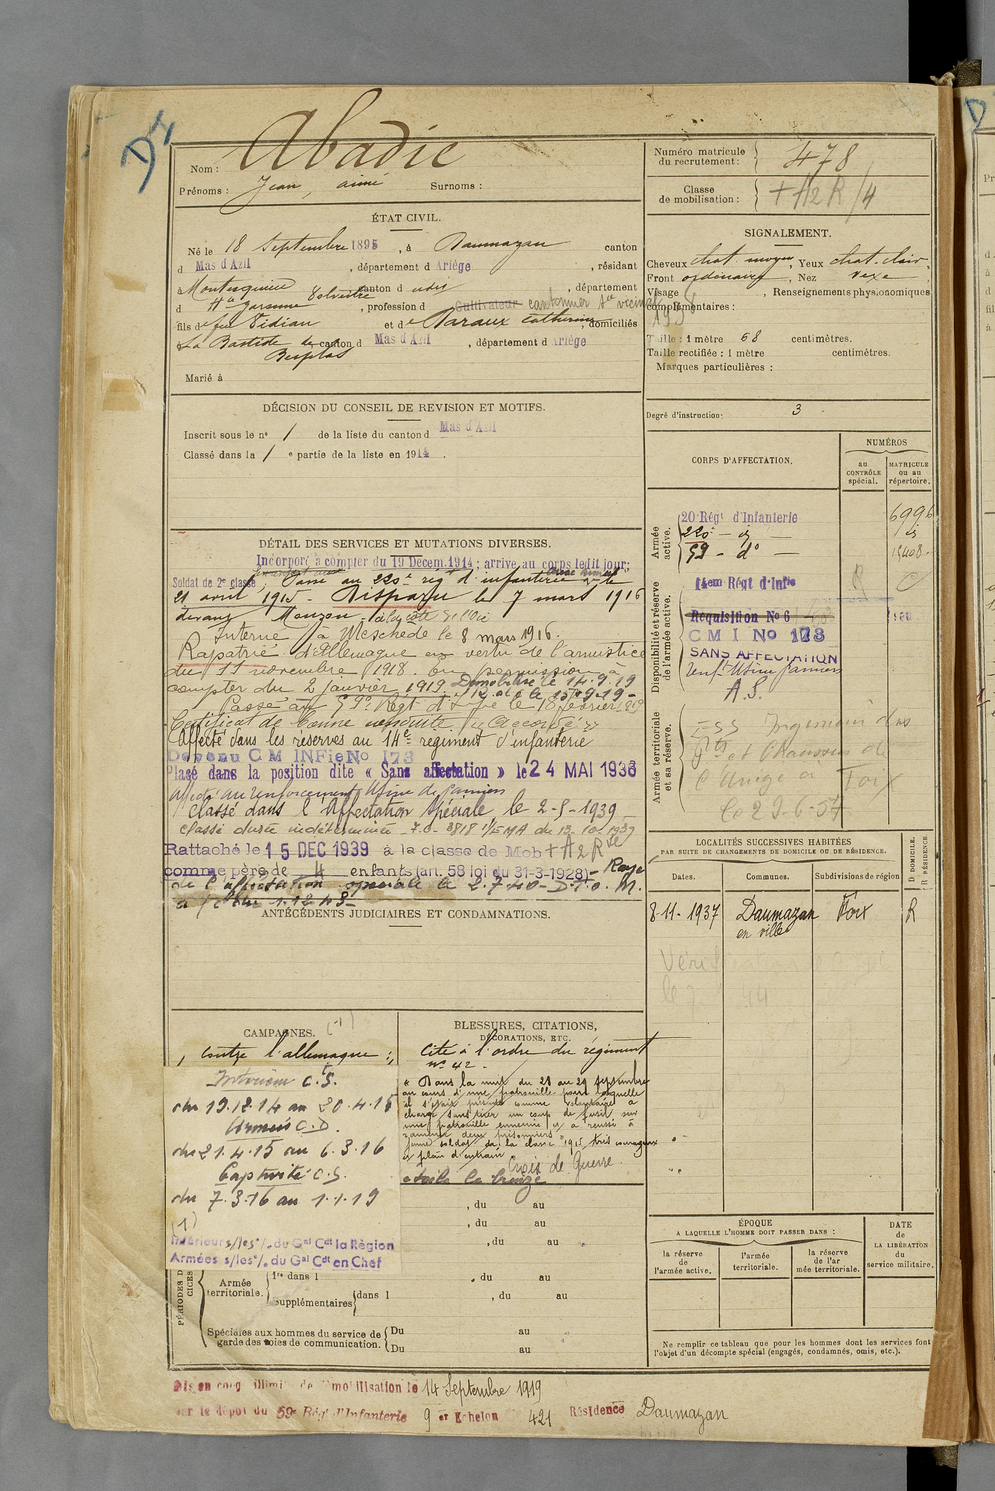 D
Nom : Abadie
Prénoms : Jean, aimé Surnoms :
ÉTAT CIVIL.
Né le 18 Septembre 1895, à Daumazan canton
d Mas d'Azil, département d Ariège, résidant
à Montesquieu Volvestre canton d dudit, département
d Hte Garonne, profession d Cultivateur cantonnier
fils de feu Vidian et de Daraux Catherine, domiciliés
La Bastide de Besplas canton d Mas d'Azil, département d Ariège
Marié à
DÉCISION DU CONSEIL DE REVISION ET MOTIFS.
Inscrit sous le n° 1 de la liste du canton d Mas d'Azil
Classé dans la 1e partie de la liste en 1914.
DÉTAIL DES SERVICES ET MUTATIONS DIVERSES.
Incorporé à compter du 19 Décem. 1914; arrivé au corps ledit jour;
Soldat de 2e classe Passé au 220e régt d'infanterie le
21 avril 1915. Disparu le 7 mars 1916
devant Mouzon
Interné à Meschede le 8 mars 1916.
Rapatrié d'Allemagne en vertu de l'armistice
du 11 novembre 1918. en permission à
compter du 2 janvier 1919 Démobilisé le 14.9.19
Passé au 59e Régt d'Inf le 18 février
Certificat de bonne conduite "Accordé"
Affecté dans les réserves au 14e régiment d'infanterie
Devenu C M INFie No 173
Plasé dans la position dite « Sans affectation » le 24 MAI 1936
Affecté au renforcement Usine de Pamiers
Classé dans l'Affectation Spéciale, le 2-5-1939
Classé durée indéterminée
Rattaché le 15 DEC 1939 à la classe de Mob + A2R
comme père de 4 enfants (art. 58 loi du 31-3-1928) - Rayé
de l'affectation spéciale le 2.7.40
ANTÉCÉDENTS JUDICIAIRES ET CONDAMNATIONS.
CAMPAGNES. (1)
Contre l'allemagne :
Intérieur C.S.
du 19.12.14 au 20.4.15
Armées C.D.
du 21.4.15 au 6.3.16
Captivité C.S.
du 7.3.16 au 1.1.19
(1)
Intérieur s/les % du Gal Cdt la Région
Armées s/les % du Gal Cdt en Chef
BLESSURES, CITATIONS,
DÉCORATIONS, ETC.
Cité à l'ordre du régiment
n° 42.
« Dans la nuit du 28 au 29 septembre
au cours d'une patrouille pour laquelle
il s'était présenté comme volontaire a
chargé sans tirer un coup de fusil sur
une patrouille ennemie et a réussi à
ramener deux prisonniers
jeune soldat de la classe 1915, très courageux
et plein d'entrain
Croix de Guerre
étoile de bronze
, du au
, du au
, du au
Armée territoriale. 1re dans l , du au
supplémentaires dans l , du au
Spéciales aux hommes du service de garde des voies de communication. Du au
Du au
Numéro matricule du recrutement : 478
Classe de mobilisation : + A2R/4
SIGNALEMENT.
Cheveux chat moyen, Yeux chat. clair,
Front ordinaire, Nez vexe
Visage , Renseignements physionomiques
complémentaires :
Taille : 1 mètre 68 centimètres.
Taille rectifiée : 1 mètre centimètres.
Marques particulières :
Degré d'instruction : 3
CORPS D'AFFECTATION.
NUMÉROS
au CONTRÔLE spécial.
MATRICULE ou au répertoire.
Armée active.
20 Régt d'Infanterie 6996
220 - d° -
59 - d° - 15408
Disponibilité et réserve de l'armée active.
14em Régt d'Infie
Requisition No 6
C M I No 173
SANS AFFECTATION
Renft Usine Pamiers
A.S.
Armée territoriale et sa réserve.
Ingénieur des
Pts et Chaussées de
l'Ariège à Foix
LOCALITÉS SUCCESSIVES HABITÉES
PAR SUITE DE CHANGEMENTS DE DOMICILE OU DE RÉSIDENCE.
Dates. Communes. Subdivisions de région D DOMICILE. R RÉSIDENCE
8-11-1937 Daumazan Foix R
en ville
ÉPOQUE
A LAQUELLE L'HOMME DOIT PASSER DANS :
la réserve de l'armée active.
l'armée territoriale.
la réserve de l'armée territoriale.
DATE de LA LIBÉRATION du service militaire.
Ne remplir ce tableau que pour les hommes dont les services font
l'objet d'un décompte spécial (engagés, condamnés, omis, etc.).
Mis en cong illimité de démobilisation le 14 Septembre 1919
par le dépôt du 59e Régt d'Infanterie 9 er Echelon 421 Résidence Daumazan